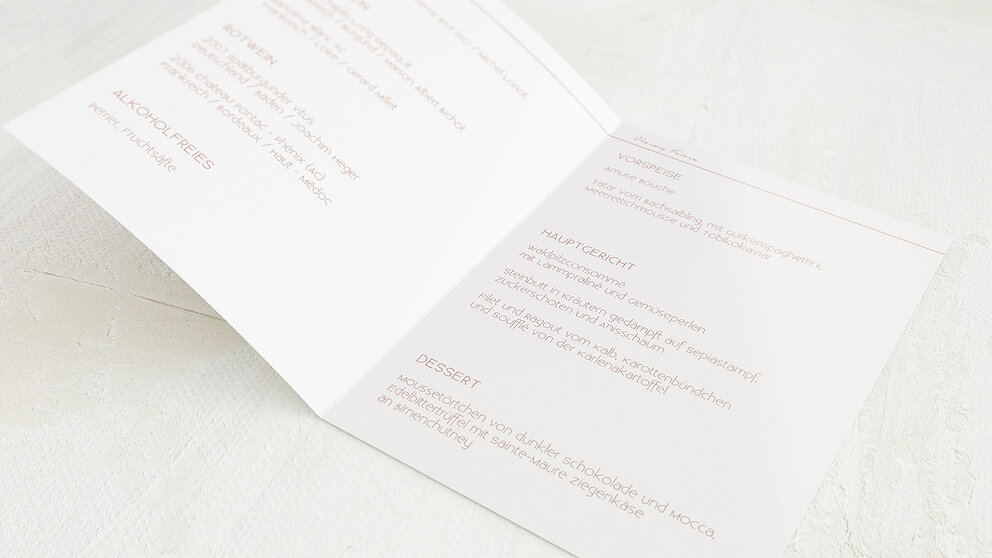 Chablis Long-Depaquit
Burgund / Maison Albert Bichot
Frankreich / Loire / Gérard Millet
ROTWEIN
2007 Spätburgunder Vitus
Deutschland / Baden / Joachim Heger
2006 Chateau Pontac - Phénix (AC)
Frankreich / Bordeaux / Haut - Médoc
ALKOHOLFREIES
Perrier, Fruchtsäfte
VORSPEISE
Amuse Bouche
Tatar vom Bachsaibling, mit Gurkenspaghettini,
Meerrettichmousse und Tobikokaviar
HAUPTGERICHT
Waldpilzconsommé
mit Lammpraliné und Gemüseperlen
Steinbutt in Kräutern gedämpft auf Sepiastampf,
Zuckerschoten und Anisschaum
Filet und Ragout vom Kalb, Karottenbündchen
und Soufflé von der Karlenakartoffel
DESSERT
Moussetörtchen von dunkler Schokolade und Mocca,
Edelbittertrüffel mit Sainte-Maure Ziegenkäse
an Birnenchutney